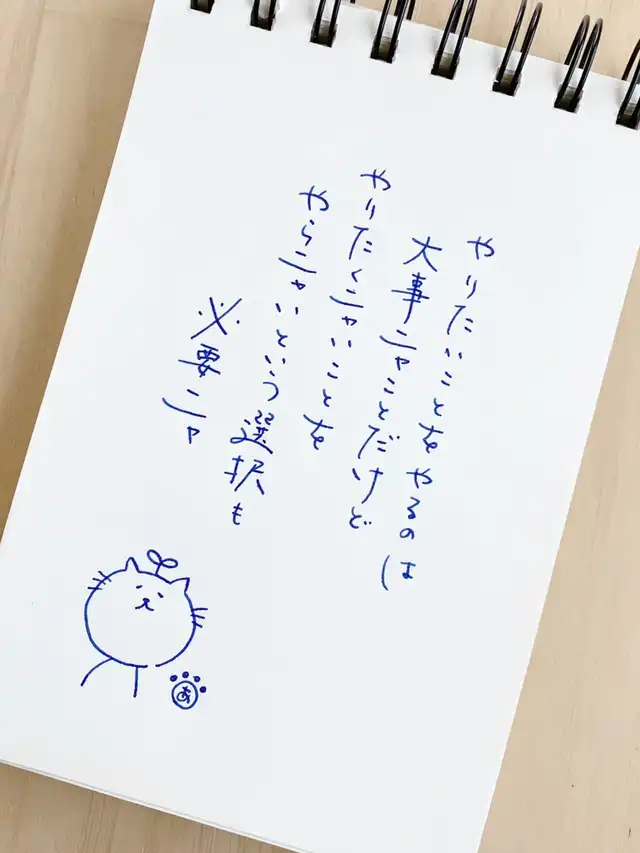 やりたいことをやるのは
大事ニャことだけど
やりたくニャいことを
やらニャいという選択も
必要ニャ
あ